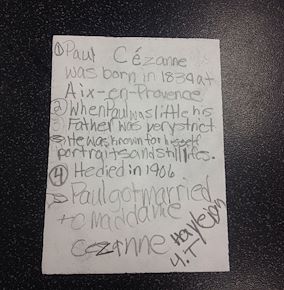 ① Paul Cézanne
was born in 1839 at
Aix-en-Provence
② When Paul was little his
Father was very strict
③ He was known for his self
portraits and still lifes.
④ He died in 1906
Paul got married
to maddame
cezanne
4.T